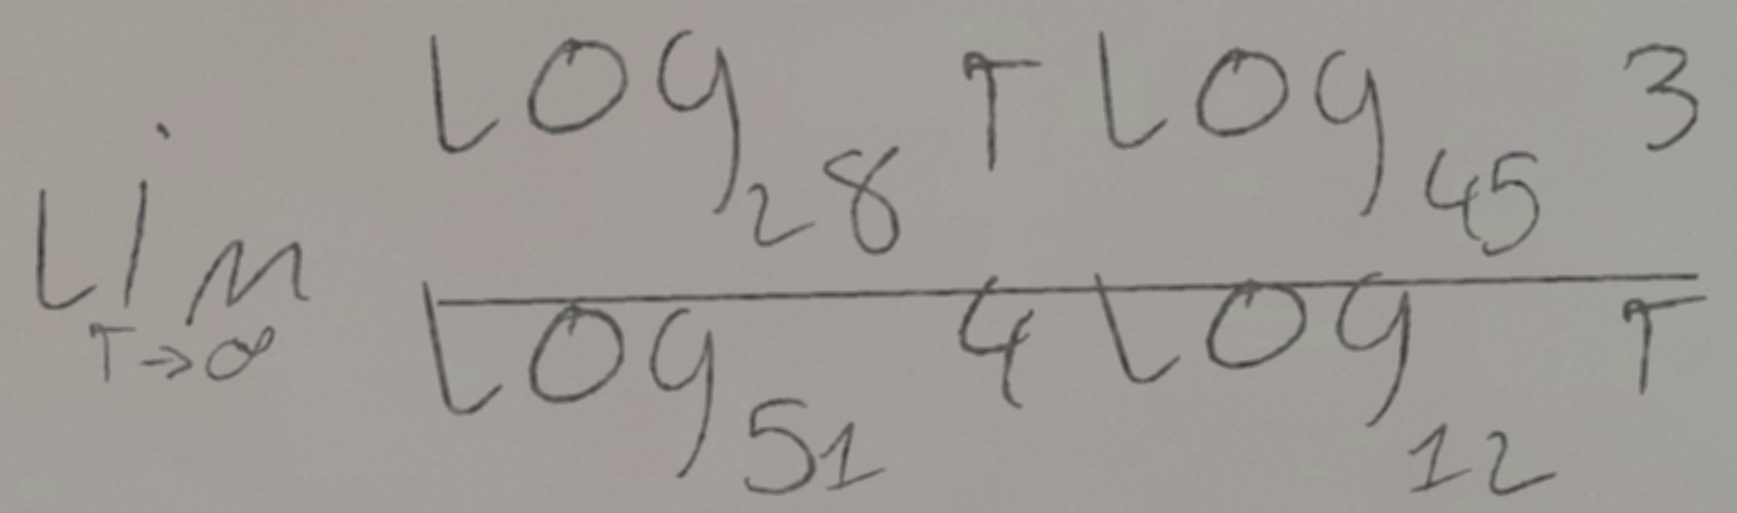 Lim T→∞ LOg₂₈ T LOg₄₅ 3
LOg₅₁ 4 LOg₁₂ T